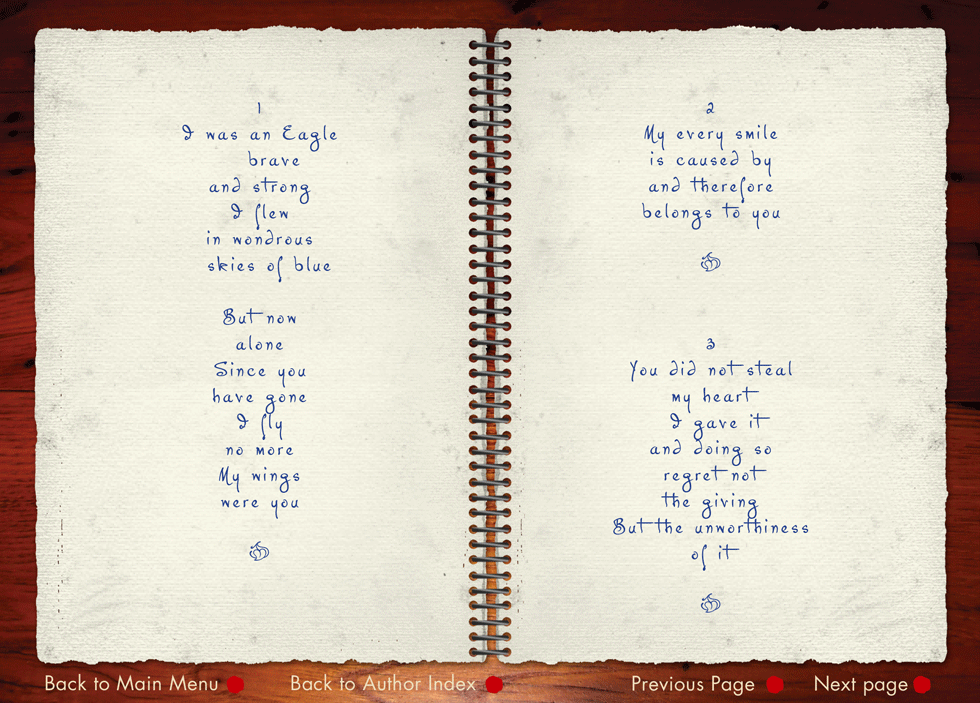 1
I was an Eagle
brave
and strong
I flew
in wondrous
skies of blue
But now
alone
Since you
have gone
I fly
no more
My wings
were you
2
My every smile
is caused by
and therefore
belongs to you
3
You did not steal
my heart
I gave it
and doing so
regret not
the giving
But the unworthiness
of it
Back to Main Menu
Back to Author Index
Previous Page
Next page